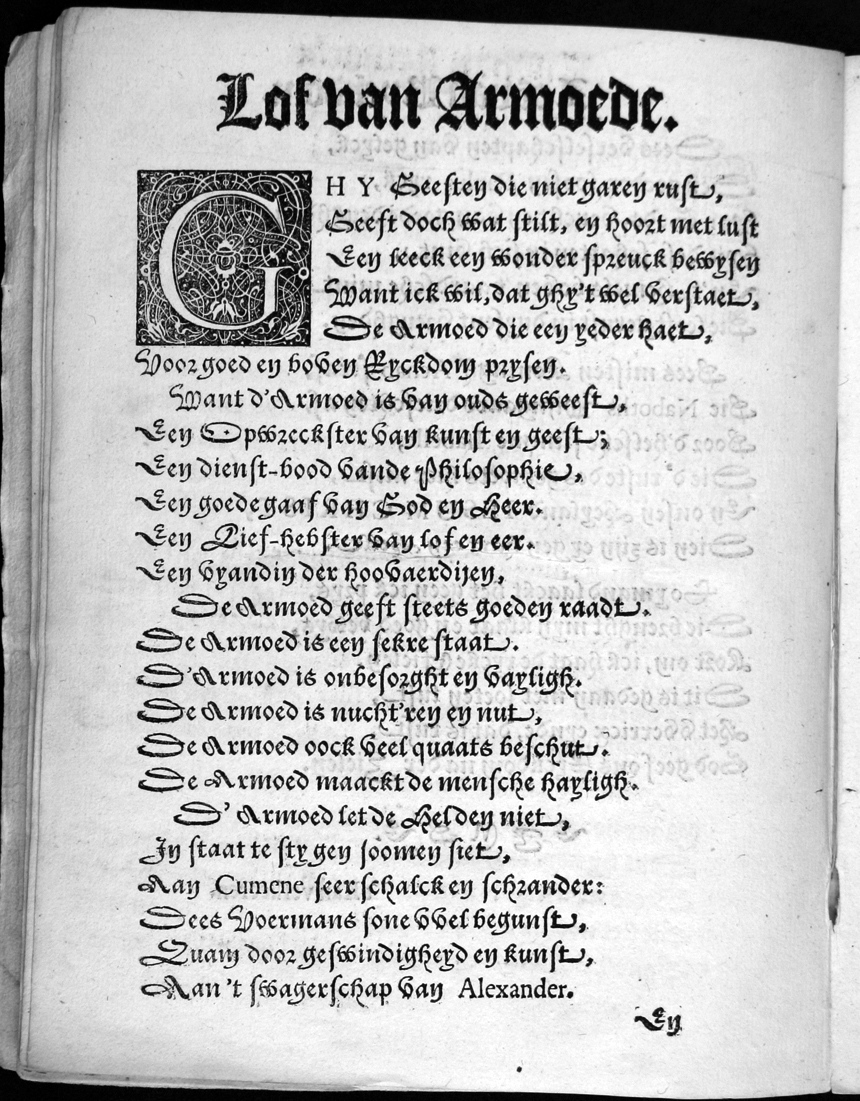 Lof van Armoede.
GHY Geesten die niet garen rust,
Geeft doch wat stilt, en hoort met lust
Een leeck een wonder spreuck bewysen
Want ick wil, dat ghy't wel verstaet,
De Armoed die een yeder haet,
Voor goed en boven Ryckdom prysen.
Want d'Armoed is van ouds geweest,
Een Opweckster van kunst en geest;
Een dienst-bood vande Philosophie,
Een goede gaaf van God en Heer.
Een Lief-hebster van lof en eer.
Een vyandin der hoovaerdijen,
De Armoed geeft steets goeden raadt.
De Armoed is een sekre staat.
D'Armoed is onbesorght en vayligh.
De Armoed is nucht'ren en nut,
De Armoed oock veel quaats beschut.
De Armoed maackt de mensche hayligh.
D' Armoed let de Helden niet,
In staat te stygen soomen siet,
Aan Cumene seer schalck en schrander:
Dees Voermans sone vvel begunst,
Quam door geswindigheyd en kunst,
Aan 't swagerschap van Alexander.
En